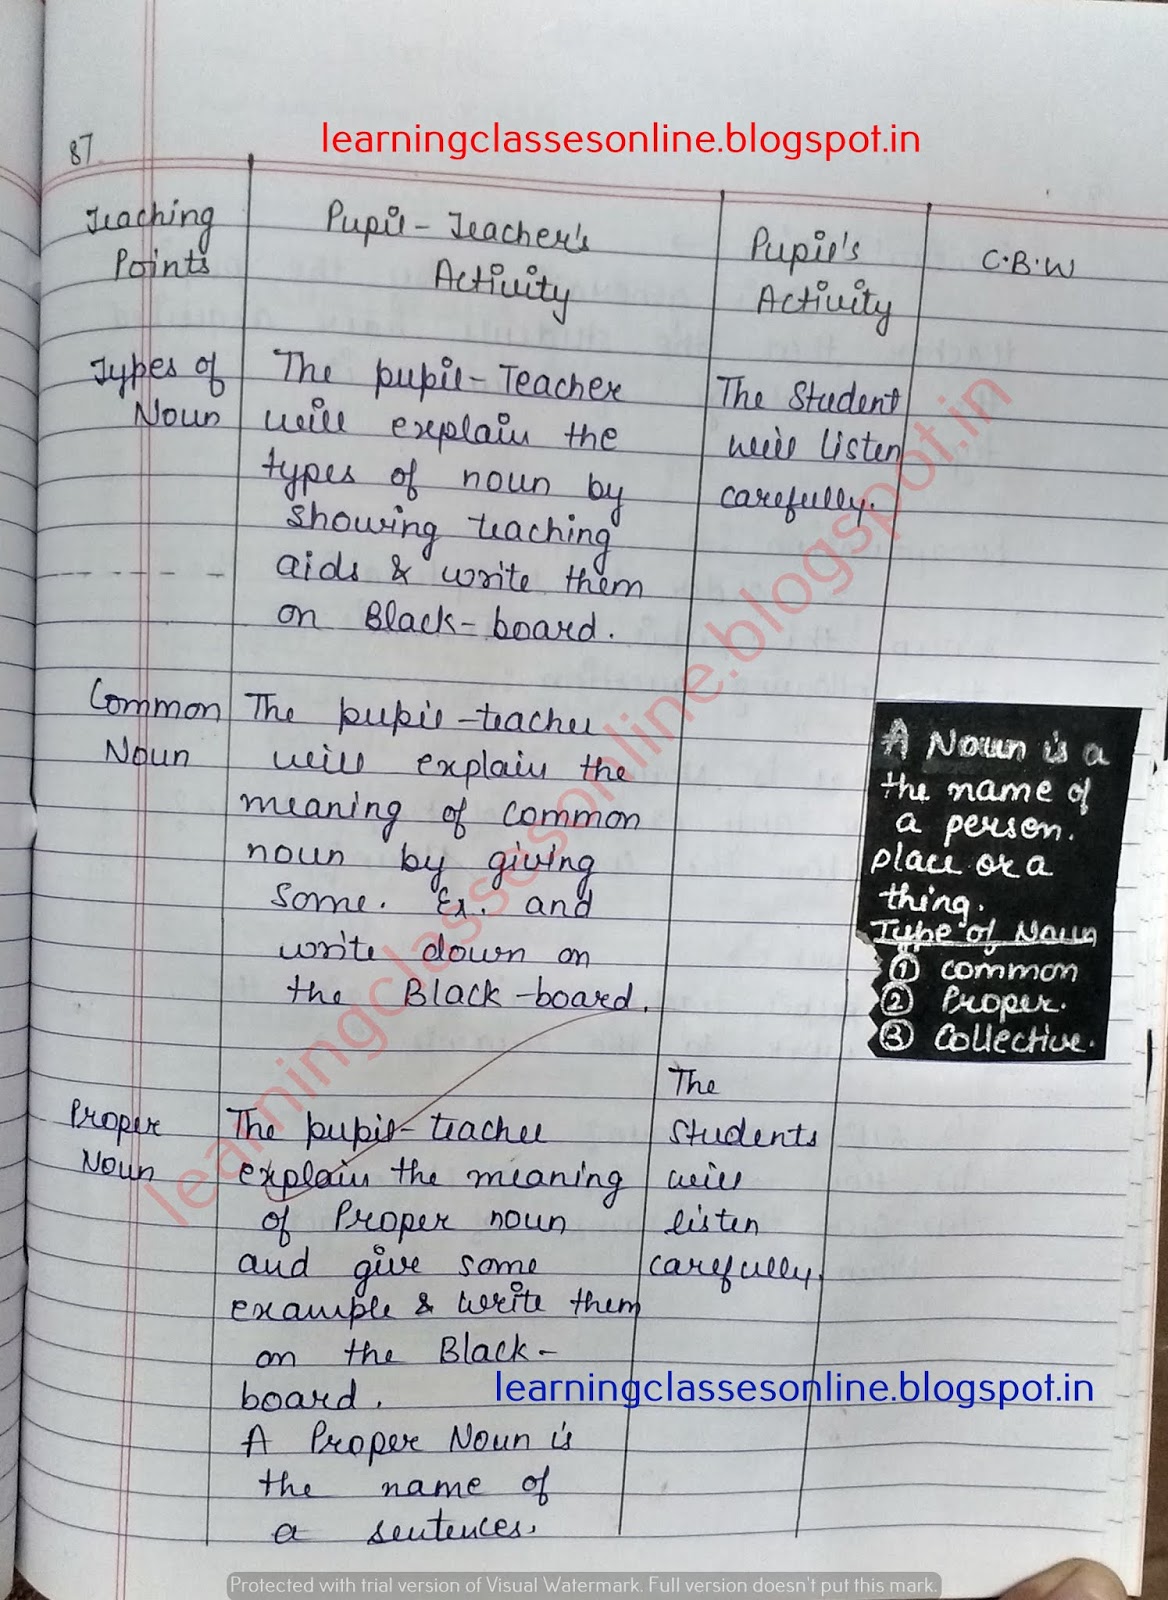 learningclassesonline.blogspot.in
87
Teaching Points
Pupil-Teacher's Activity
Pupil's Activity
C.B.W
Types of
Noun
The pupil-Teacher
will explain the
types of noun by
showing teaching
aids & write them
on Black-board.
The Student
will listen
carefully.
Common
Noun
The pupil-teacher
will explain the
meaning of common
noun by giving
some. Ex. and
write down on
the Black-board.
A Noun is a
the name of
a person.
place or a
thing.
Type of Noun
① common
② Proper.
③ Collective.
Proper
Noun
The pupil-teacher
explain the meaning
of Proper noun
and give some
example & write them
on the Black-
board.
A Proper Noun is
the name of
a sentences.
The
Students
will
listen
carefully.
learningclassesonline.blogspot.in
learningclassesonline.blogspot.in
Protected with trial version of Visual Watermark. Full version doesn't put this mark.